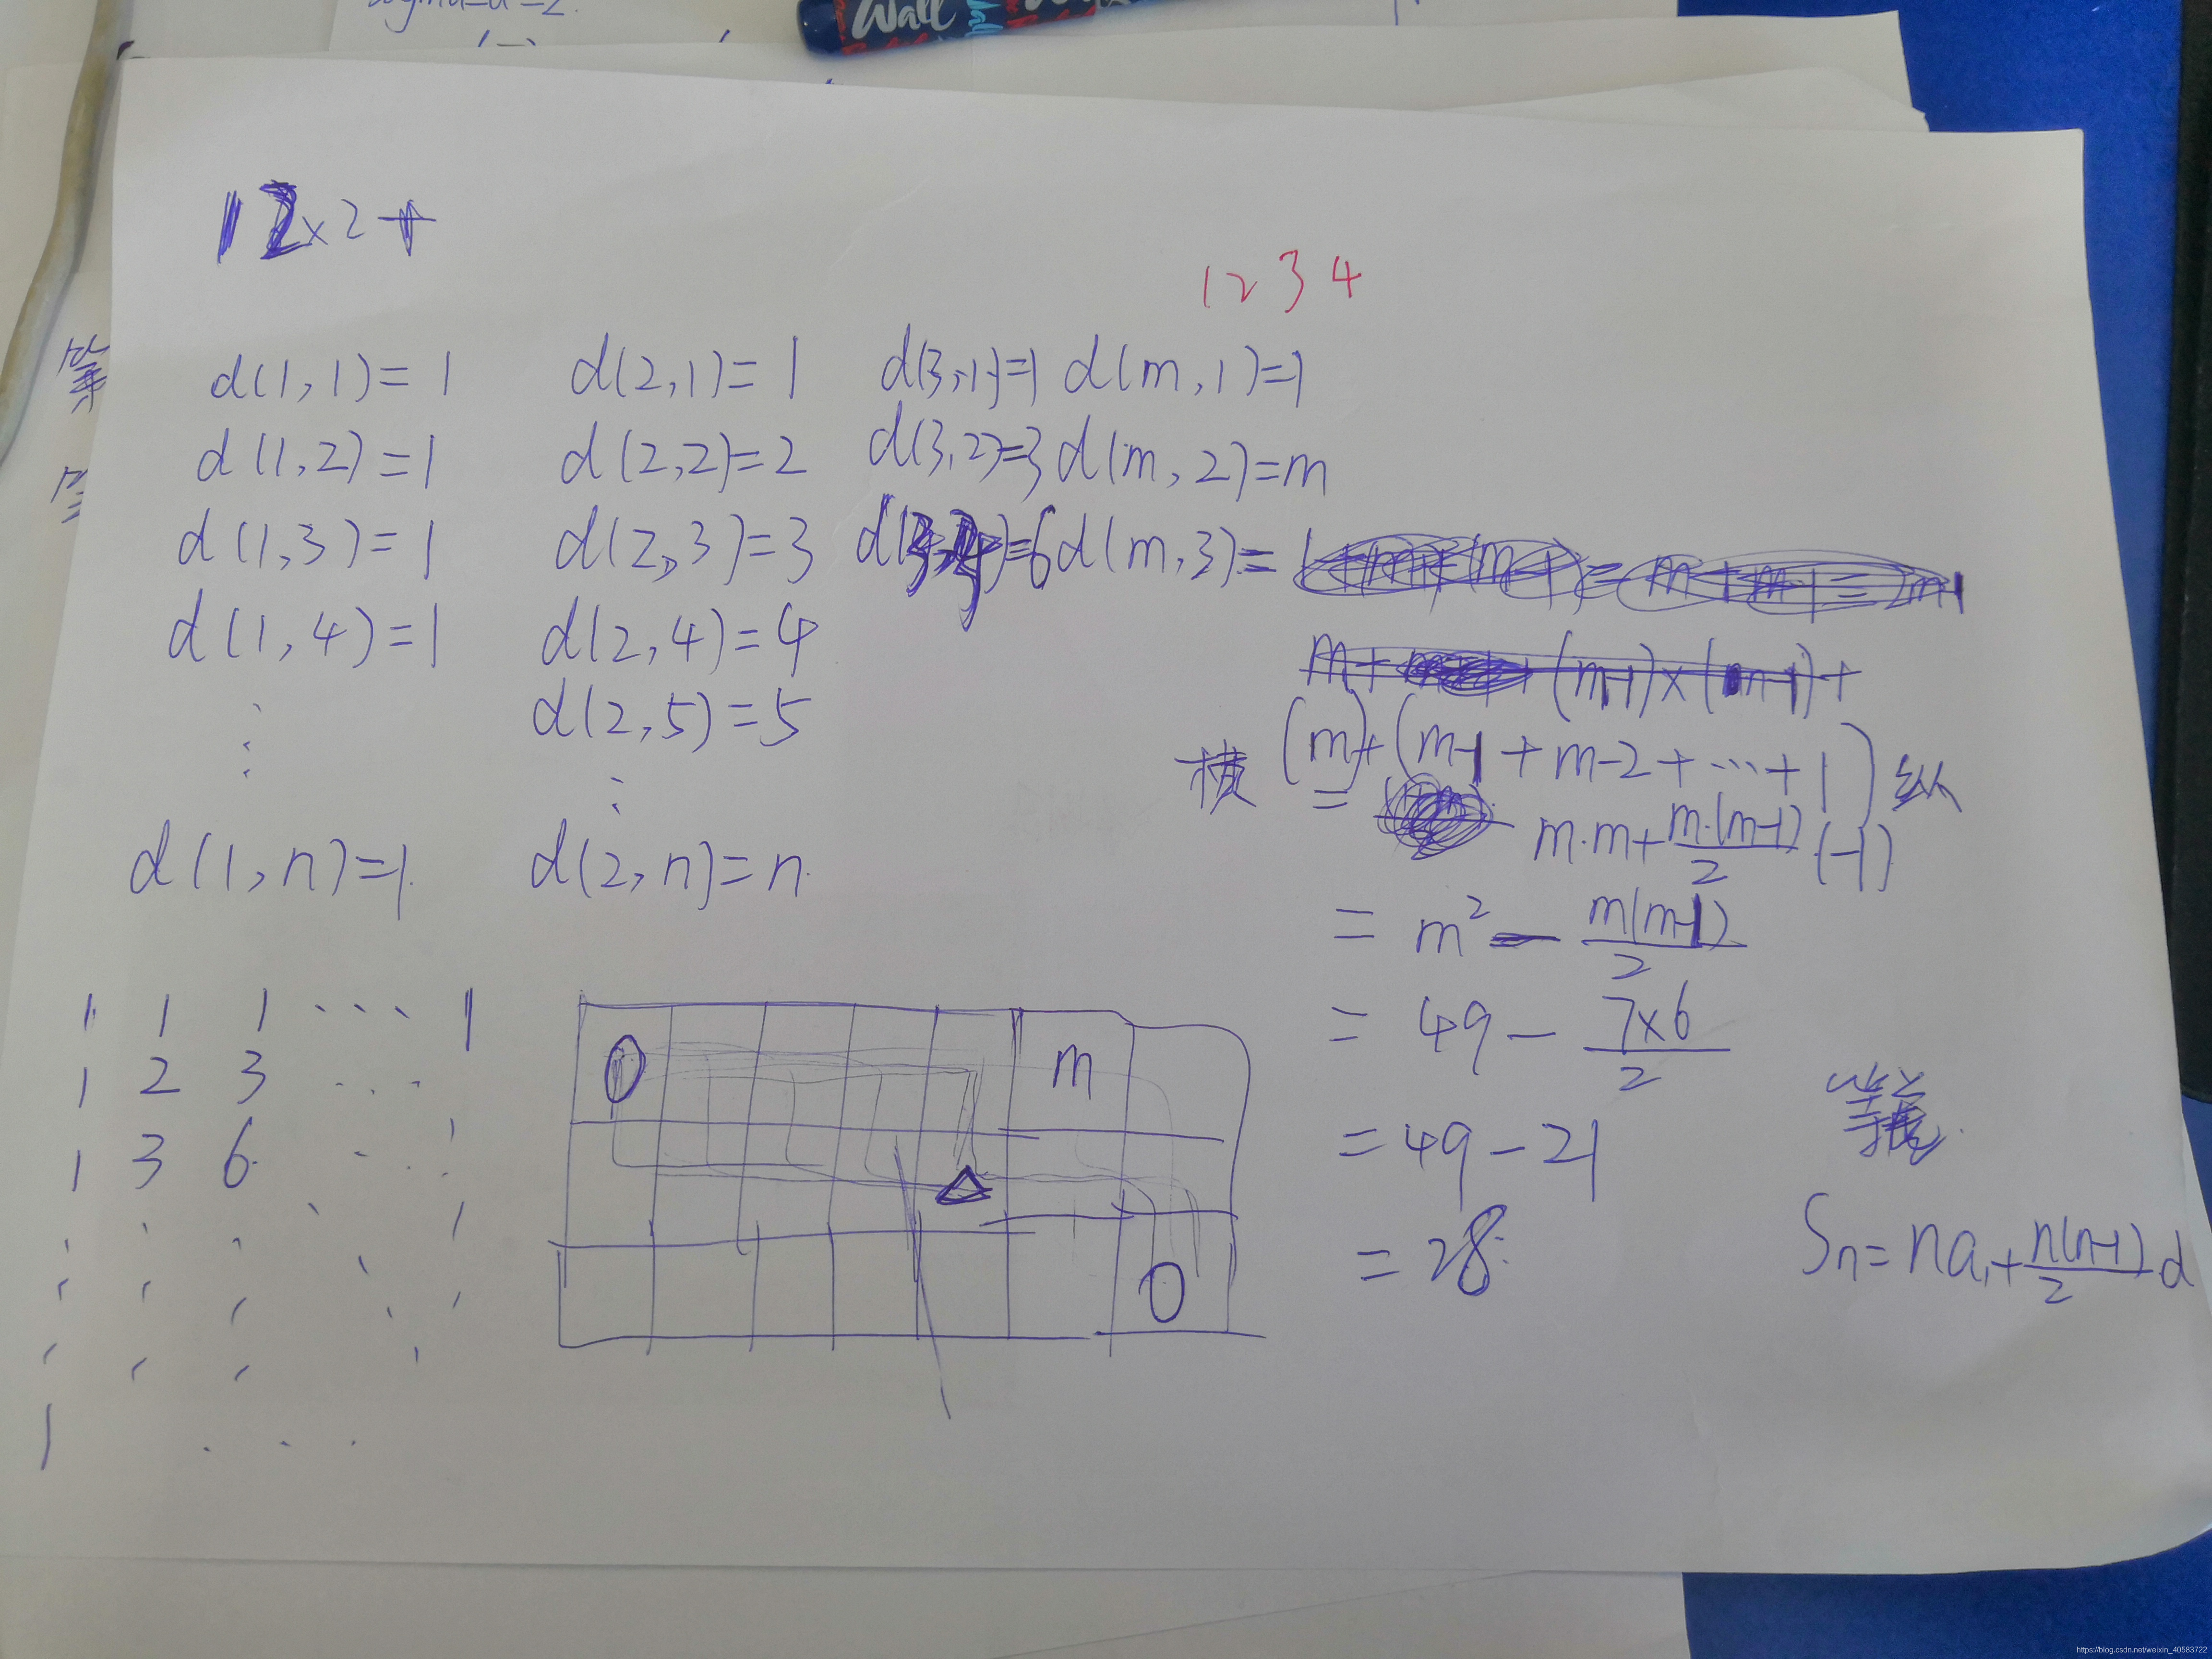 Wall
12x2+
1 2 3 4
d(1,1)=1 d(2,1)=1 d(3,1)=1 d(m,1)=1
d(1,2)=1 d(2,2)=2 d(3,2)=3 d(m,2)=m
d(1,3)=1 d(2,3)=3 =6 d(m,3)=
d(1,4)=1 d(2,4)=4
d(2,5)=5
⋮ ⋮
d(1,n)=1 d(2,n)=n
(m-1)x(m-1)+
横 (m)+(m-1+m-2+…+1) 纵
= m·m+\frac{m·(m-1)}{2}(-1)
= m²-\frac{m(m-1)}{2}
= 49-\frac{7x6}{2}
=49-21
=28
Sn=na₁+\frac{n(n-1)}{2}d
1 1 1 … 1
1 2 3 …
1 3 6 …
1 …
0 m
0
等
https://blog.csdn.net/weixin_40583722